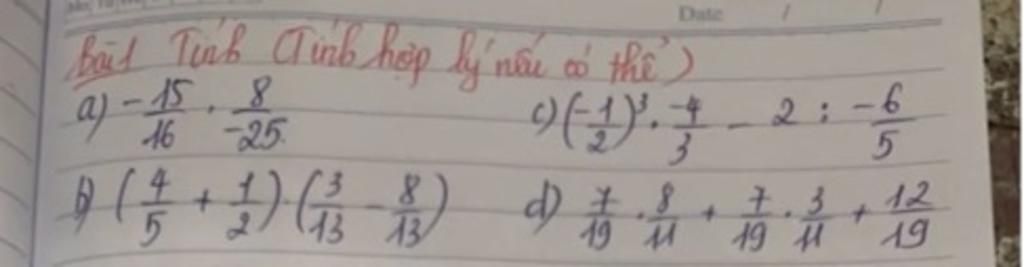 Date / /
Bài 1 Tính (Tính hợp lý nếu có thể)
a) -15/16 . 8/-25
c) (-1/2)³ . -4/3 - 2 : -6/5
b) (4/5 + 1/2) . (3/13 - 8/13)
d) 7/19 . 8/11 + 7/19 . 3/11 + 12/19